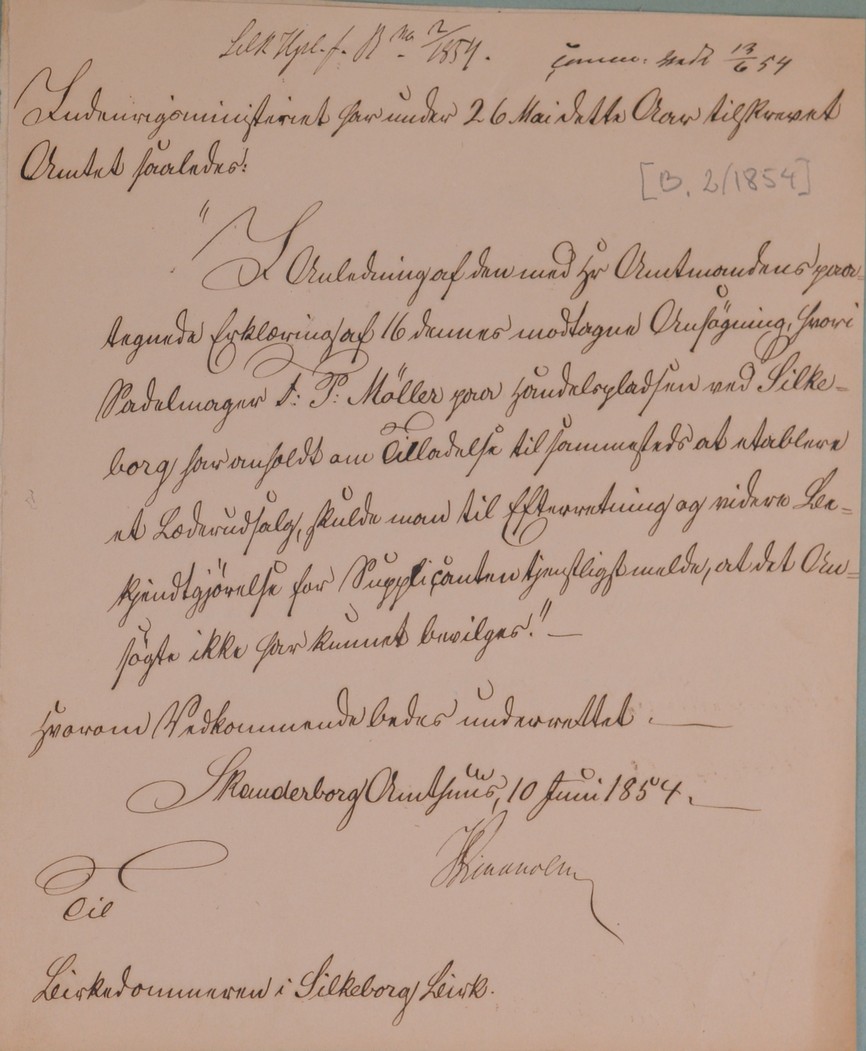 Silk Hpl. f. B No 2/1854. comm. medt 13/6 54
Indenrigsministeriet har under 26 Mai dette Aar tilskrevet
Amtet saaledes:
[B. 2/1854]
"I Anledning af den med Hr Amtmandens paa-
tegnede Erklæring af 16 dennes modtagne Ansøgning, hvori
Sadelmager F: P: Möller paa Handelspladsen ved Silke=
borg har anholdt om Tilladelse til sammesteds at etablere
et Læderudsalg, skulde man til Efterretning og videre Be=
kjendtgjörelse for Supplicanten tjenstligst melde, at det An=
søgte ikke har kunnet bevilges."
Hvorom Vedkommende bedes underrettet.
Skanderborg Amthuus, 10 Juni 1854.
Til
Birkedommeren i Silkeborg Birk.